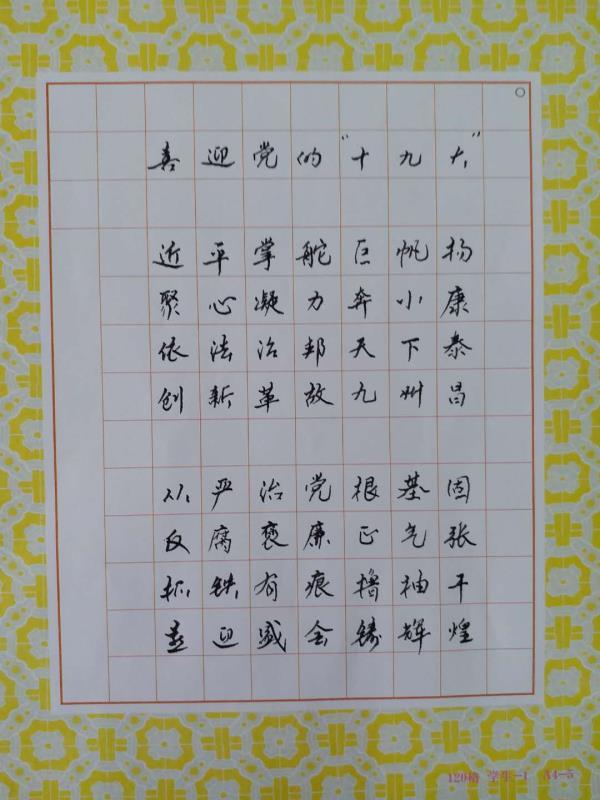 喜迎党的“十九大”
近平掌舵巨帆扬
聚心凝力奔小康泰
依法治邦天下泰
创新革故九州昌
从严治党根基固
反腐褒廉正气张
抓铁有痕撸袖干
喜迎盛会铸辉煌
120格 学生-1 A4-5